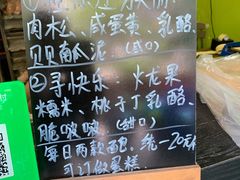 肉松、咸蛋黄、乳酪
贝贝南瓜泥.（咸口）
②寻快乐: 火龙果
糯米、桃子丁乳酪、
脆啵啵.（甜口）
每日两款 统一20元
可订做蛋糕.